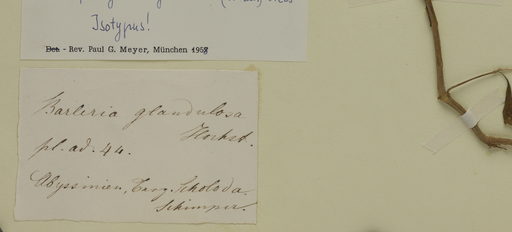 Isotypus!
Det. - Rev. Paul G. Meyer, München 1957
Barleria glandulosa
Hochst.
pl. ad. 44.
Abyssinien, Scholoda.
Schimper.